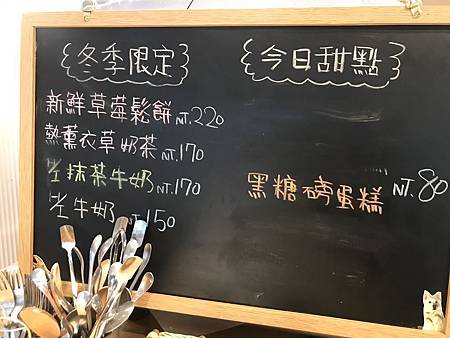 冬季限定
新鮮草莓鬆餅 NT.220
熱薰衣草奶茶 NT.170
抹茶牛奶 NT.170
牛奶 NT.150
今日甜點
黑糖磅蛋糕 NT.80